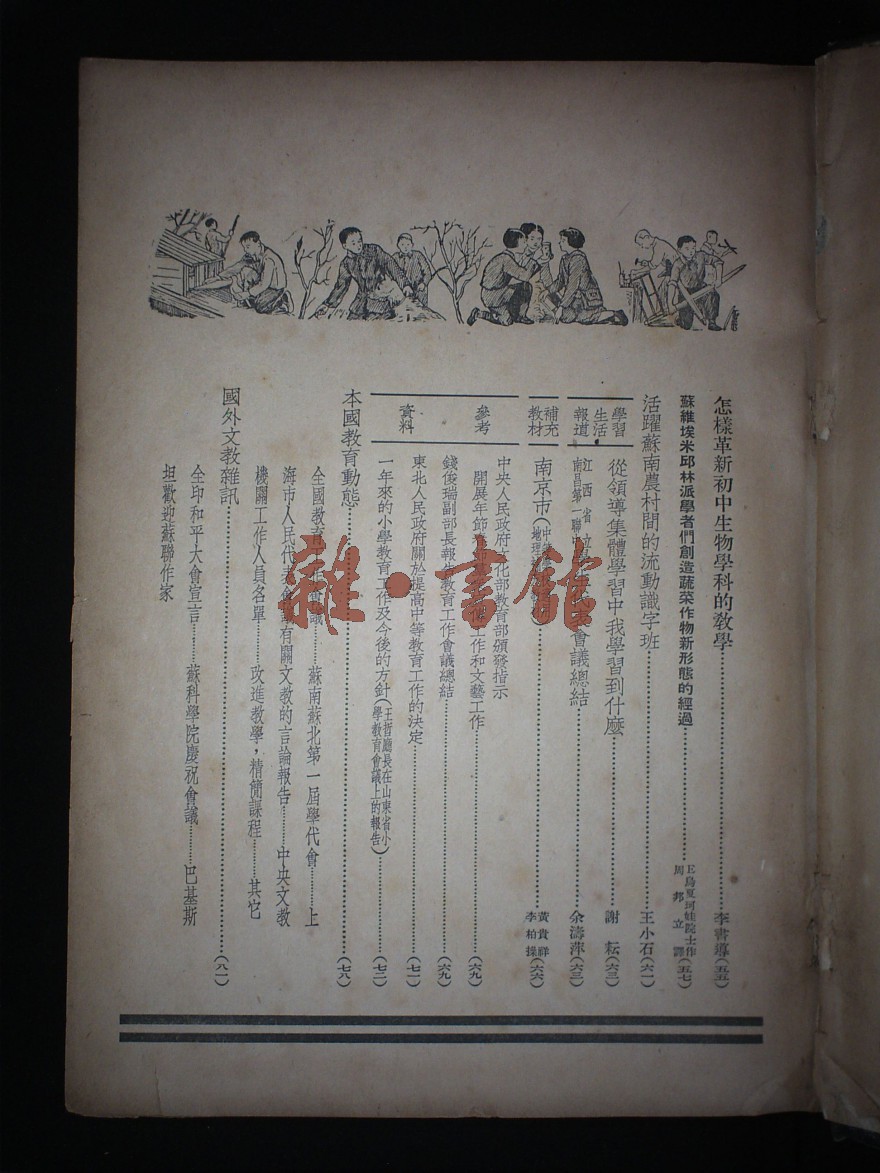 怎樣革新初中生物學科的敎學……李書導(五五)
蘇維埃米邱林派學者們創造蔬菜作物新形態的經過……E烏夏珂娃院士作 周邦立譯(五七)
活躍蘇南農村間的流動識字班……王小石(六一)
學習生活報道
從領導集體學習中我學習到什麼……謝耘(六三)
江西省立南昌第一聯中會議總結……余濤萍(六三)
補充教材
南京市(中地理……黃貴祥 李柏操(六六)
參考資料
中央人民政府文化部教育部頒發指示
開展年節工作和文藝工作……(六九)
錢俊瑞副部長報告教育工作會議總結……(六九)
東北人民政府關於提高中等教育工作的決定……(七一)
一年來的小學教育工作及今後的方針(王哲廳長在山東省小學教育會議上的報告)……(七二)
本國教育動態……(七八)
全國教育工作會議……蘇南蘇北第一屆學代會……上
海市人民代表會議有關文教的言論報告……中央文教
機關工作人員名單……改進教學，精簡課程……其它
國外文教雜訊……(八一)
全印和平大會宣言……蘇科學院慶祝會議……巴基斯
坦歡迎蘇聯作家
雜·書館